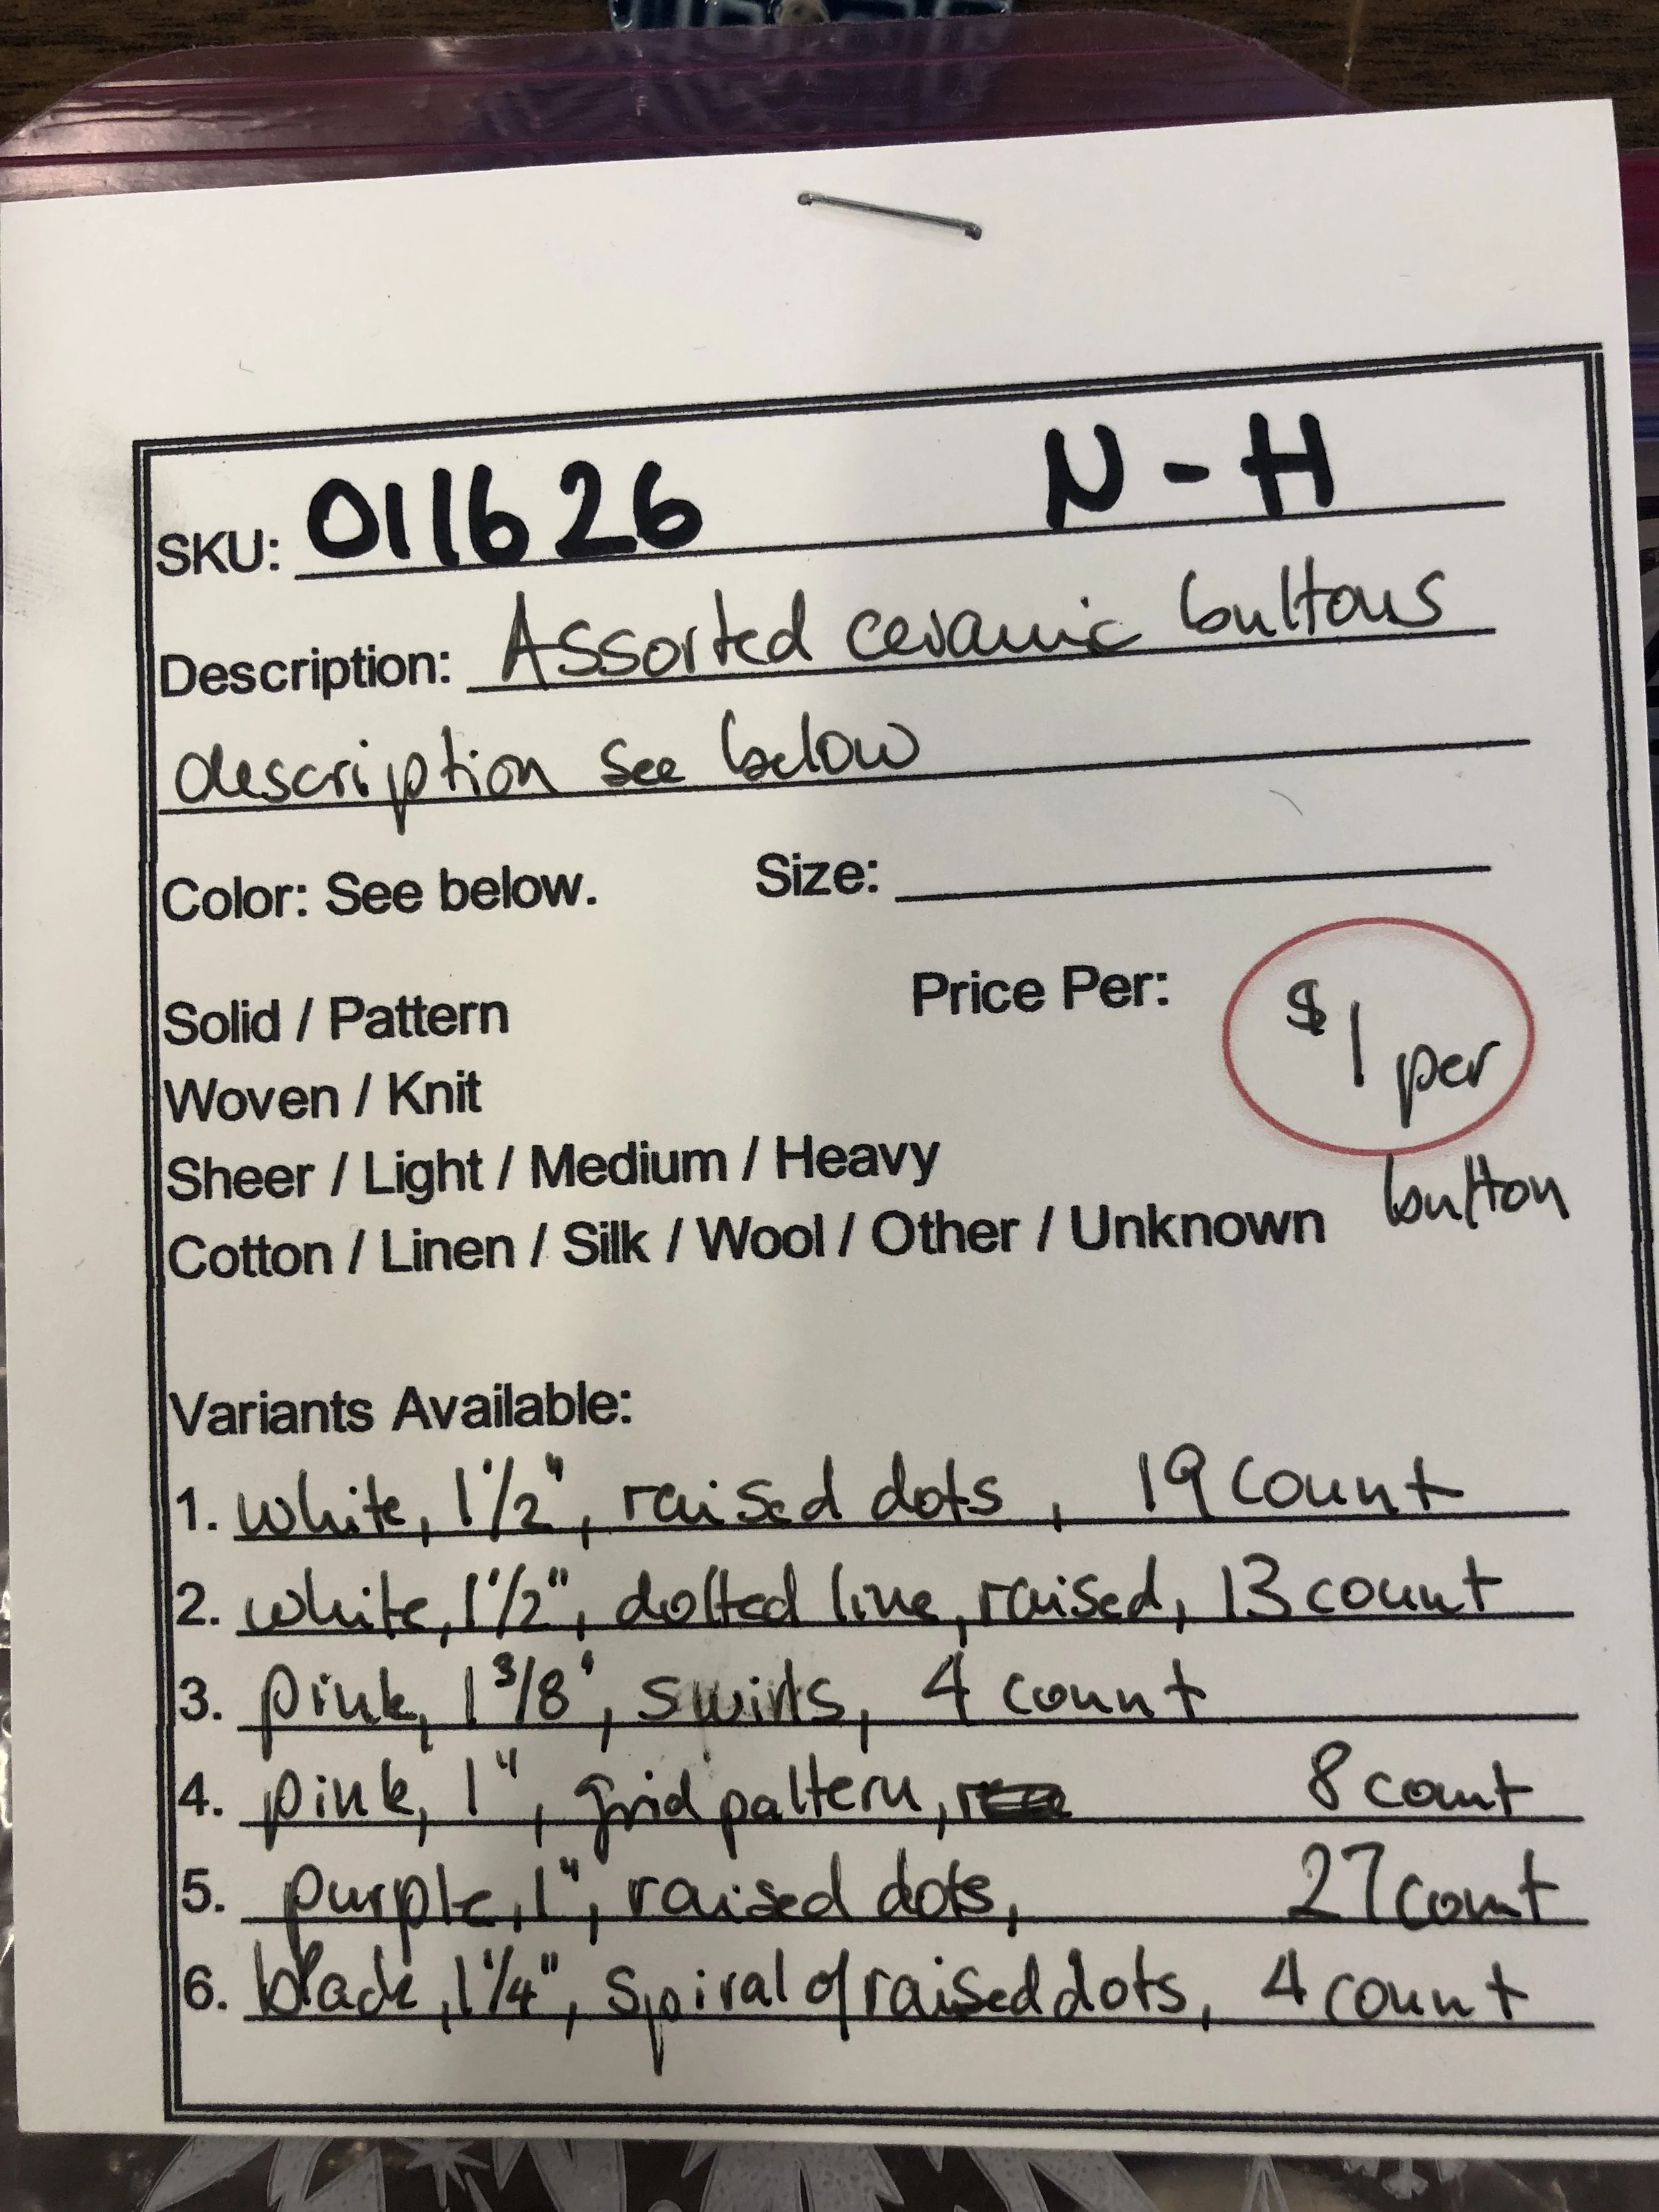 SKU: 011626 N-H
Description: Assorted ceramic buttons
description see below
Color: See below. Size:
Solid / Pattern Price Per: $1 per
Woven / Knit
Sheer / Light / Medium / Heavy
button
Cotton / Linen / Silk / Wool / Other / Unknown
Variants Available:
1. white, 1 1/2", raised dots, 19 count
2. white, 1 1/2", dotted line, raised, 13 count
3. pink, 1 3/8", swirls, 4 count
4. pink, 1", grid pattern, 8 count
5. purple, 1", raised dots, 27 count
6. black, 1 1/4", spiral of raised dots, 4 count